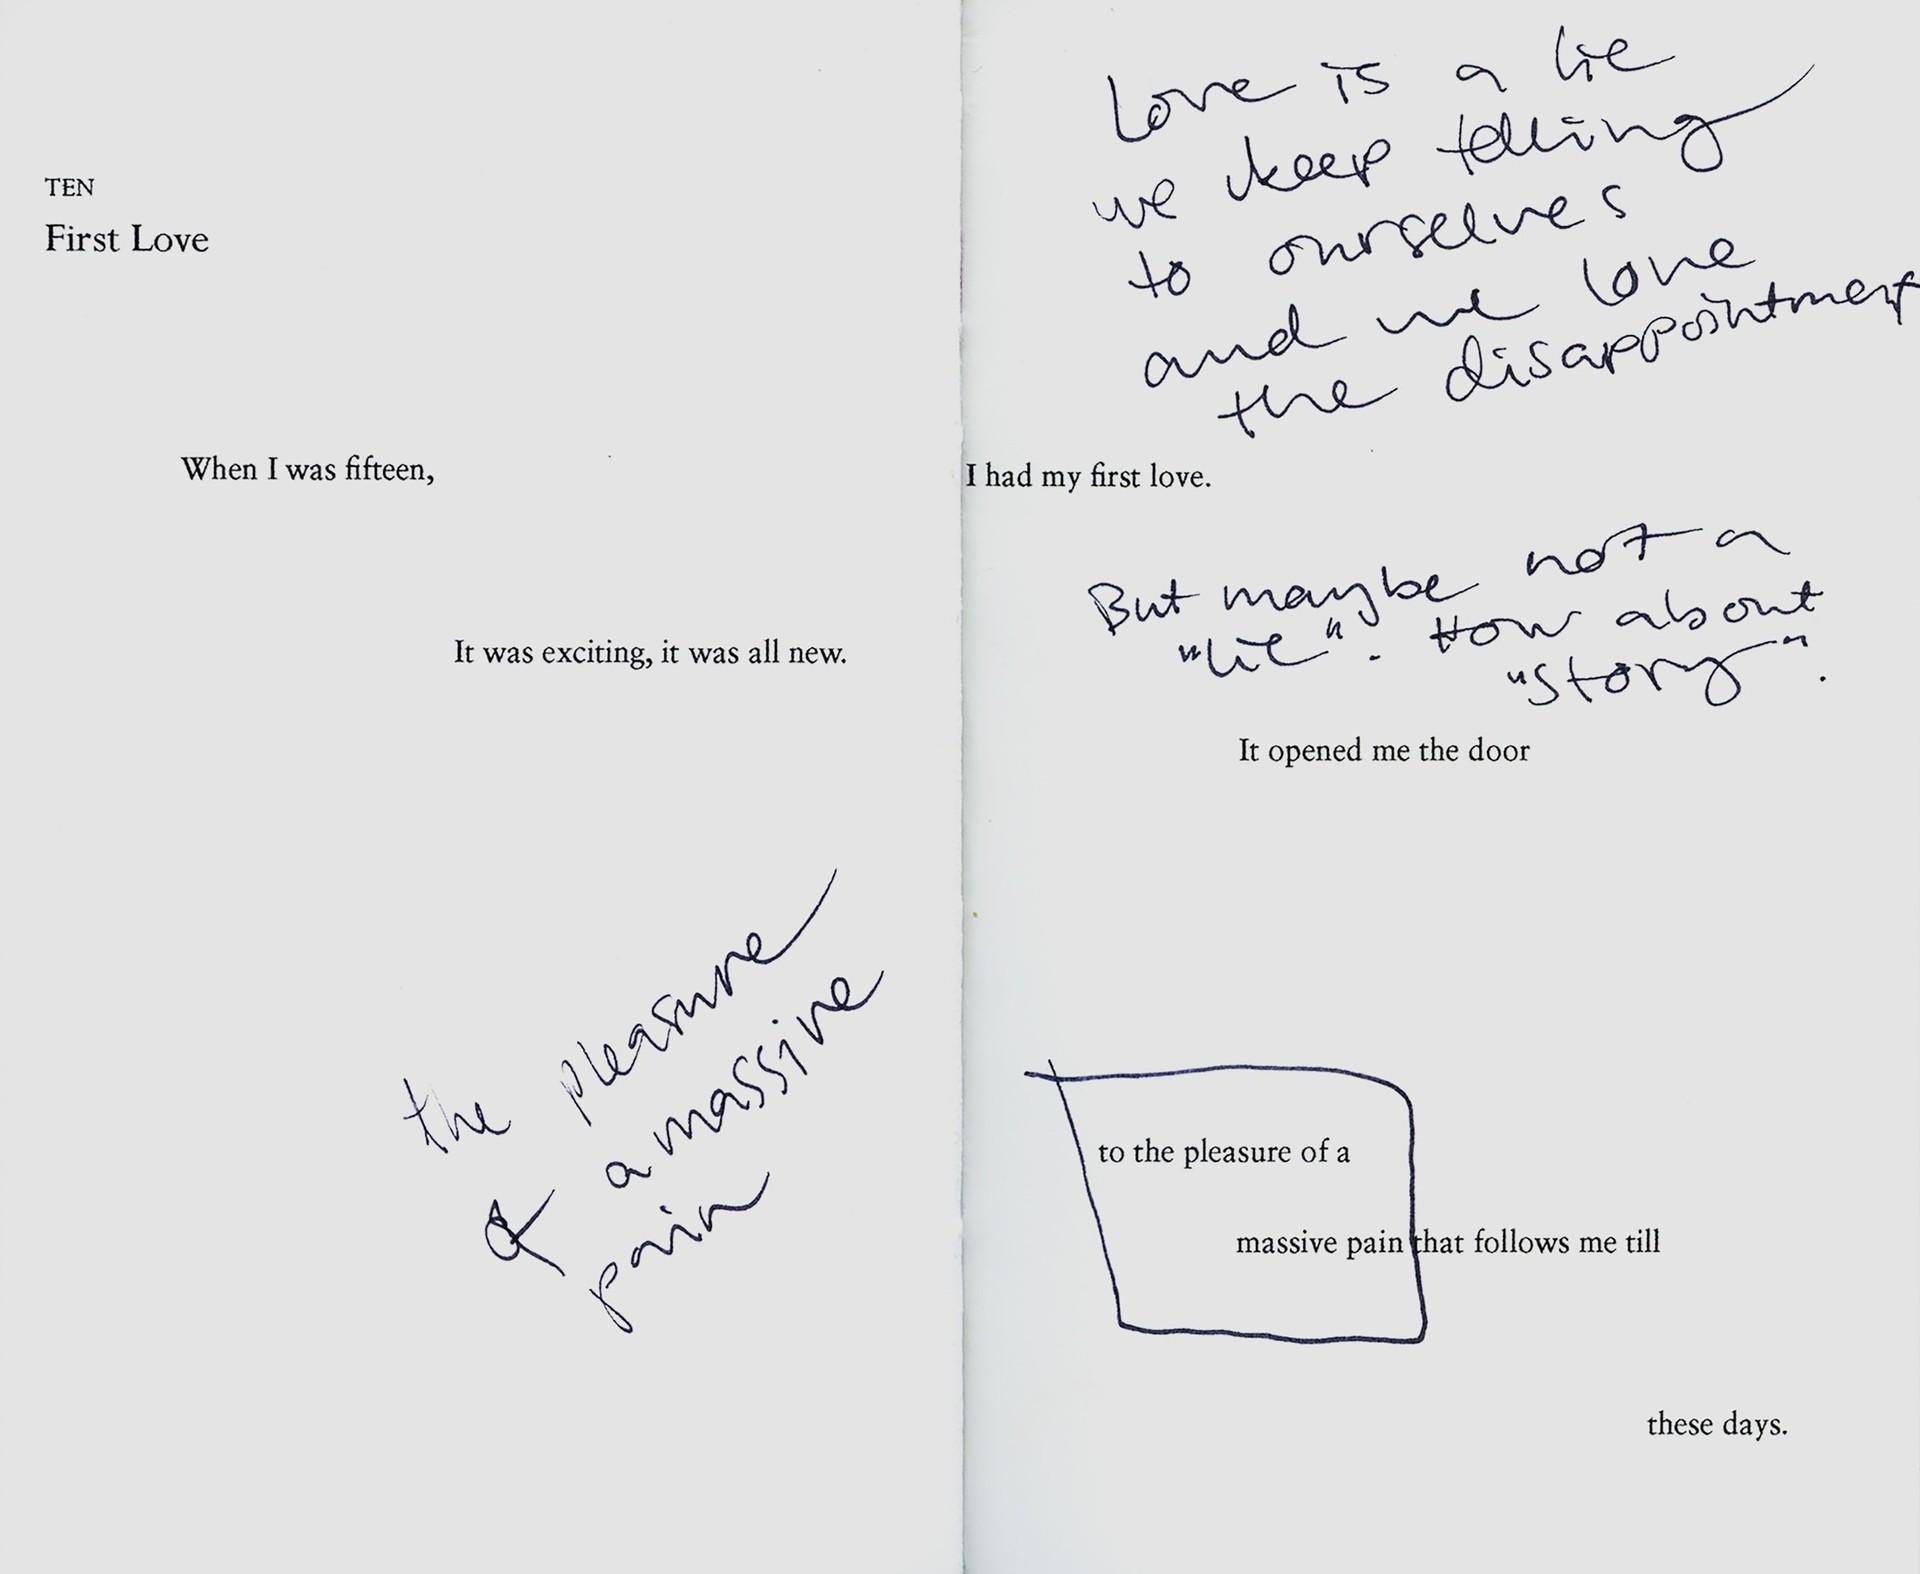 TEN
First Love
When I was fifteen,
It was exciting, it was all new.
the pleasure
& a massive
pain
Love is a lie
we keep telling
to ourselves
and we love
the disappointment
I had my first love.
But maybe not a
"lie". How about
"story".
It opened me the door
to the pleasure of a
massive pain that follows me till
these days.